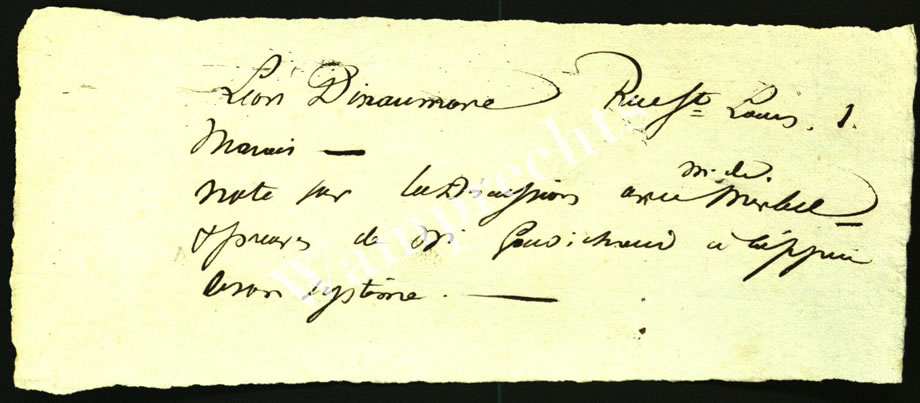 Léon Dinaumare Rue St Louis. 1.
Marais —
Note sur la Discussion avec m. de. Mirbel
& preuves de Mr Gaudichaud à l'appui
de son systême. —
Wamprechts